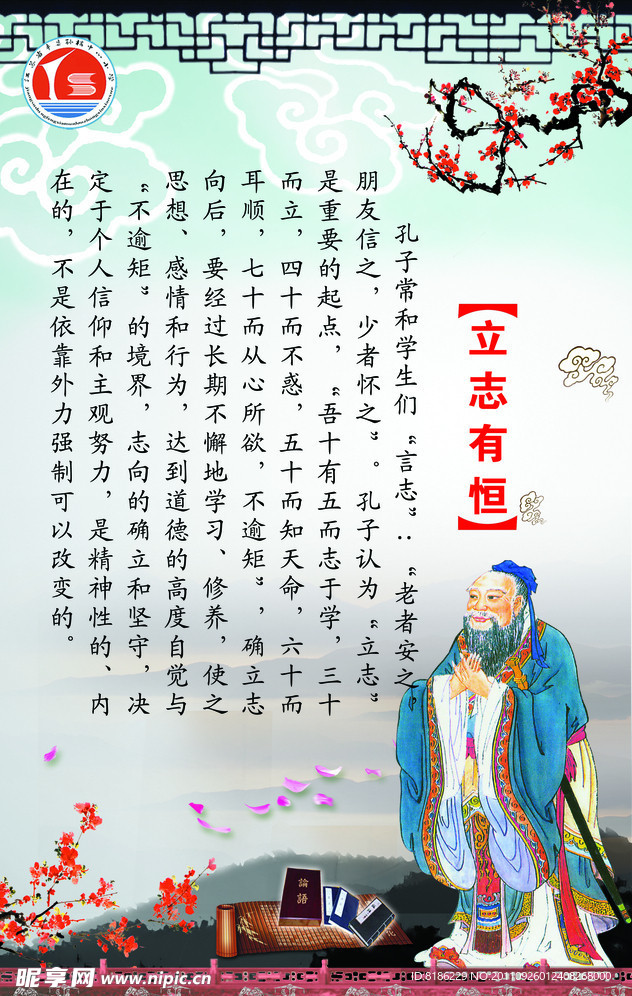 【立志有恒】
孔子常和学生们“言志”：“老者安之，
朋友信之，少者怀之”。孔子认为“立志”
是重要的起点，“吾十有五而志于学，三十
而立，四十而不惑，五十而知天命，六十而
耳顺，七十而从心所欲，不逾矩”，确立志
向后，要经过长期不懈地学习、修养，使之
思想、感情和行为，达到道德的高度自觉与
“不逾矩”的境界，志向的确立和坚守，决
定于个人信仰和主观努力，是精神性的、内
在的，不是依靠外力强制可以改变的。
論語
昵享网 www.nipic.cn
ID:8186229 NO:20110926012408268000